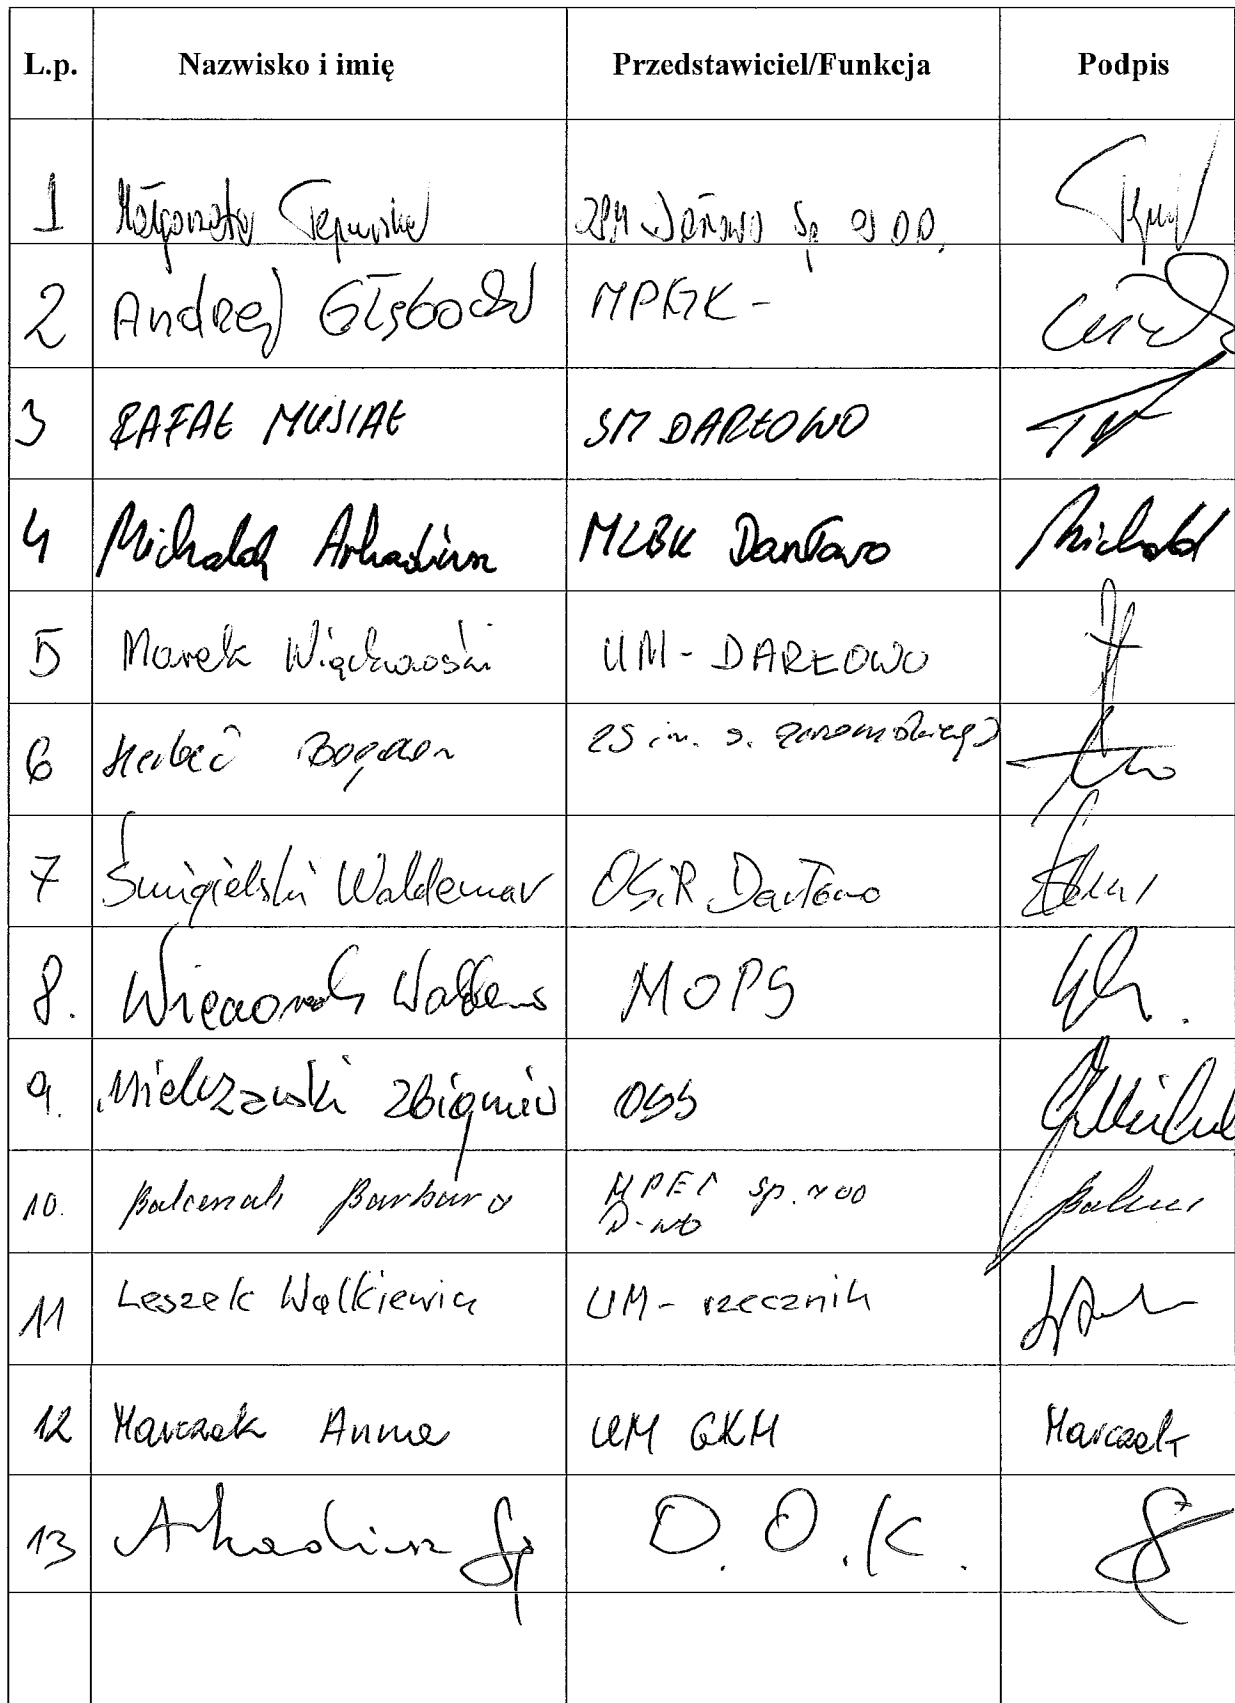 L.p. Nazwisko i imię Przedstawiciel/Funkcja Podpis
1 Małgorzata Sp. z o.o.
2 Andrzej Głębocki MPGK -
3 RAFAŁ MUSIAŁ SM DARŁOWO
4 Michalak Arkadiusz MLBK Darłowo Michalak
5 Marek Więckowski UM - DARŁOWO
6 Bogdan ZS im. S. Żeromskiego
7 Śmigielski Waldemar OSiR Darłowo
8. Wieczorek MOPS
9. Mielczarski Zbigniew
10. Barbara MPEC sp. z oo
D-wo
11 Leszek Walkiewicz UM - rzecznik
12 Marczak Anna UM GKM Marczak
13 Arkadiusz D.O.K.